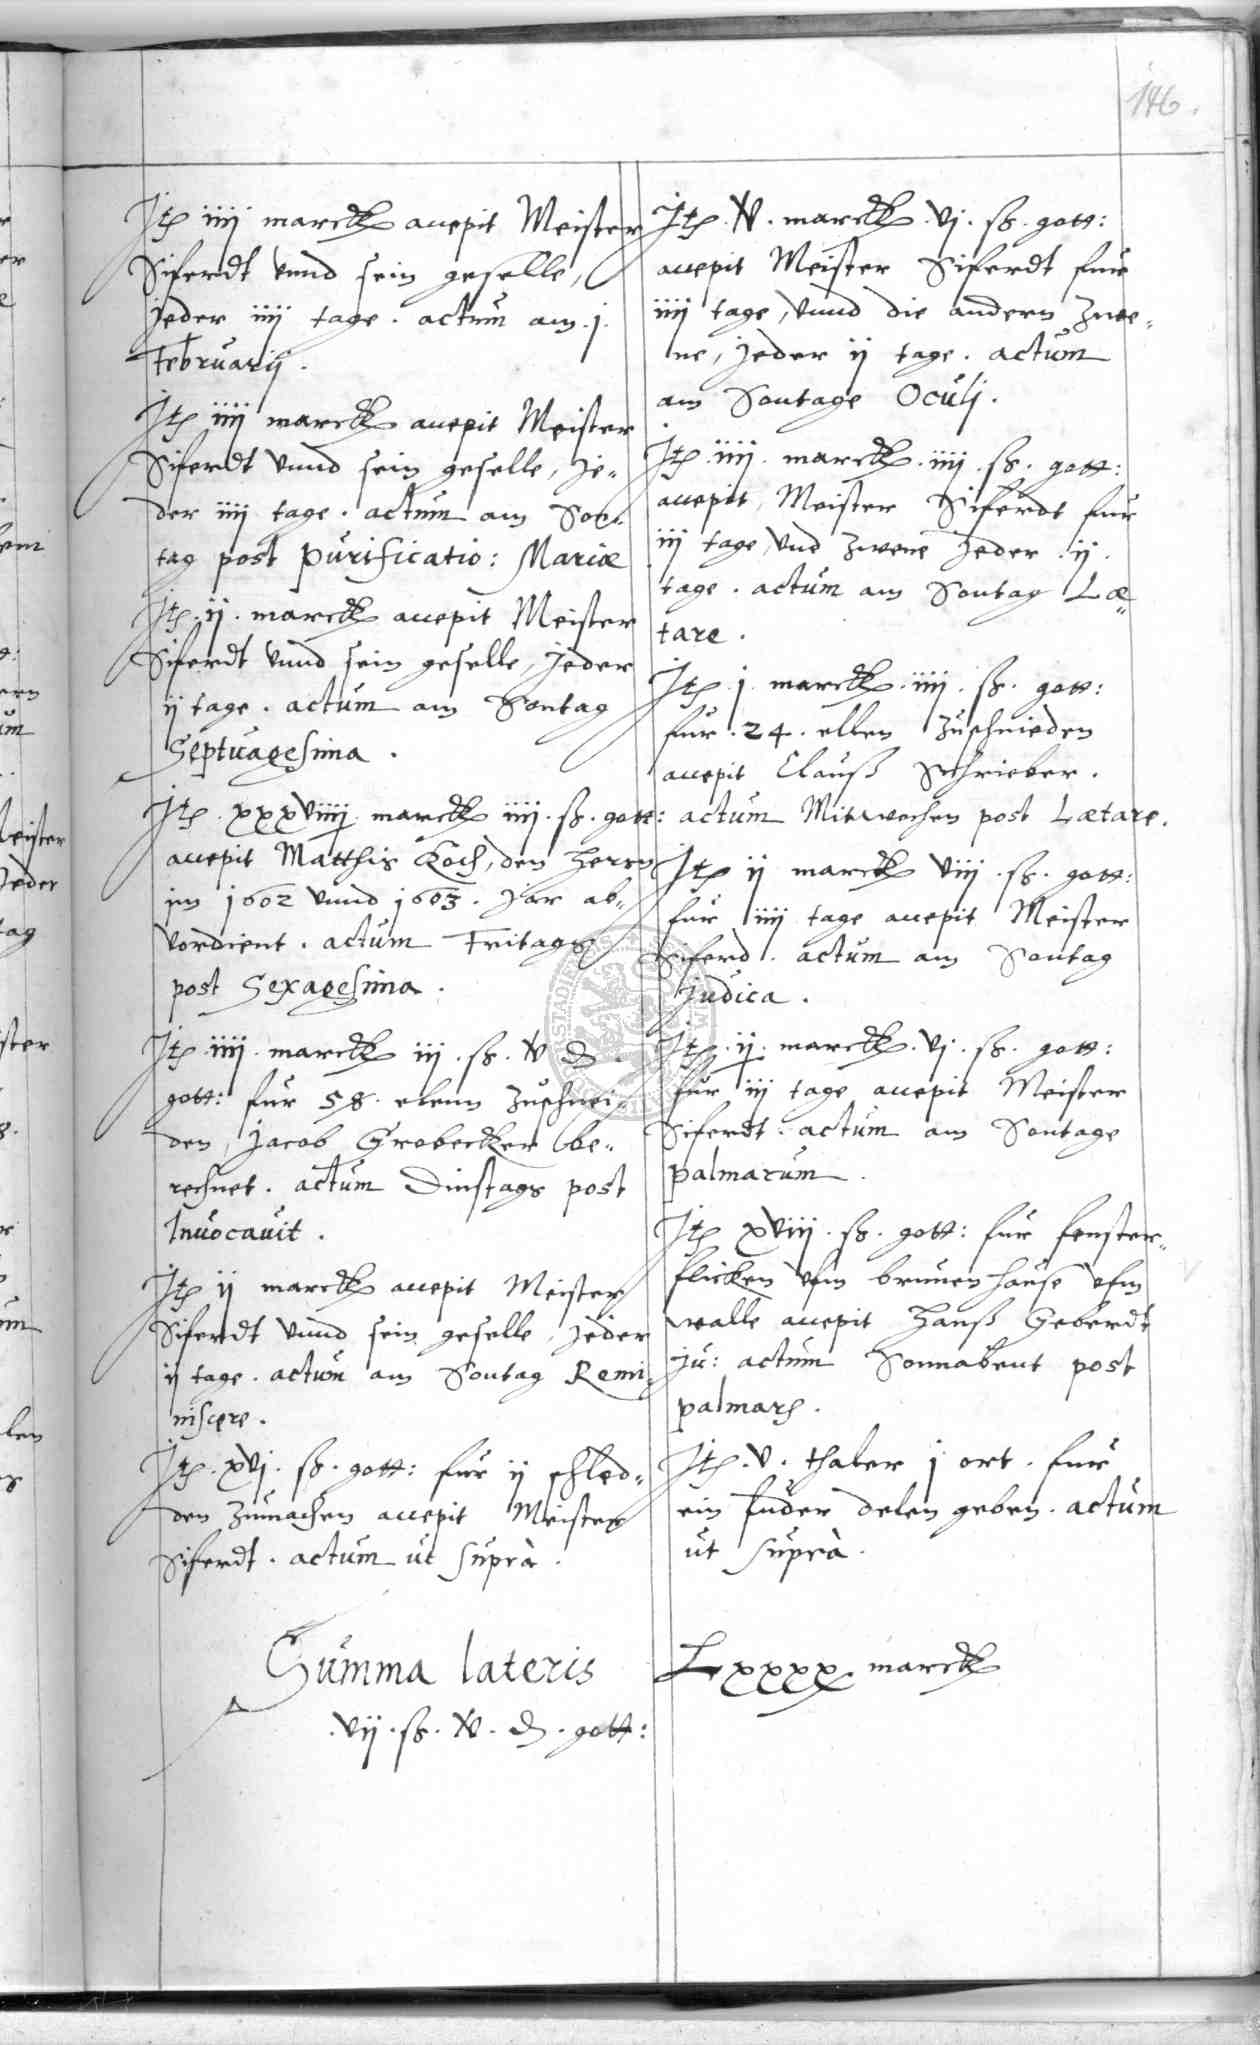 146.
Jtem iiij marck accepit Meister
Siferdt vnnd sein geselle,
Jeder iiij tage. actum am .j.
Februarij.
Jtem iiij marck accepit Meister
Siferdt vnnd sein geselle, Je„
der iiij tage. actum am Son„
tag post Purificatio: Mariæ
Jtem .ij. marck accepit Meister
Siferdt vnnd sein geselle, Jeder
ij tage. actum am Sontag
Septuagesima.
Jtem xxxviiij marck iiij. ß. gott:
accepit Matthis Koch, den Herrn
jm 1602 vnnd 1603. Jar ab„
vordient. actum Fritags
post Sexagesima.
Jtem .iiij. marck iij. ß. v ₰.
gott: fur 58. elenn zuschnei„
den, Jacob Grobecker be„
rechnet. actum Dinstags post
Invocauit.
Jtem ij marck accepit Meister
Siferdt vnnd sein geselle, Jeder
ij tage. actum am Sontag Remi„
niscere.
Jtem .xvj. ß. gott: fur ij schled„
den zumachen accepit Meister
Siferdt. actum ut suprà.
Jtem .v. marck .vj. ß. gott:
accepit Meister Siferdt fur
iiij tage, vnnd die andern zwe„
ne, Jeder ij tage. actum
am Sontage Oculj.
Jtem .iiij. marck .iiij. ß. gott:
accepit Meister Siferdt fur
iij tage, vnd zwene Jeder .ij.
tage. actum am Sontag Læ„
tare.
Jtem .j. marck .iiij. ß. gott:
fur .24. ellen zuschnieden
accepit Clauß Schrieber.
actum Mitwochen post Lætare.
Jtem ij marck viij. ß. gott:
fur iiij tage accepit Meister
Siferd. actum am Sontag
Judica.
Jtem .ij. marck .vj. ß. gott:
fur iij tage accepit Meister
Siferdt. actum am Sontage
Palmarum.
Jtem xviij. ß. gott: fur fenster„
flicken vfm brunen hause vfm
walle accepit Hanß Geberdt
ju: actum Sonnabent post
palmarum.
Jtem .v. thaler j ort. fur
ein fuder delen geben. actum
ut suprà.
Summa lateris Lxxxx marck
.vij. ß. v. ₰. gott: